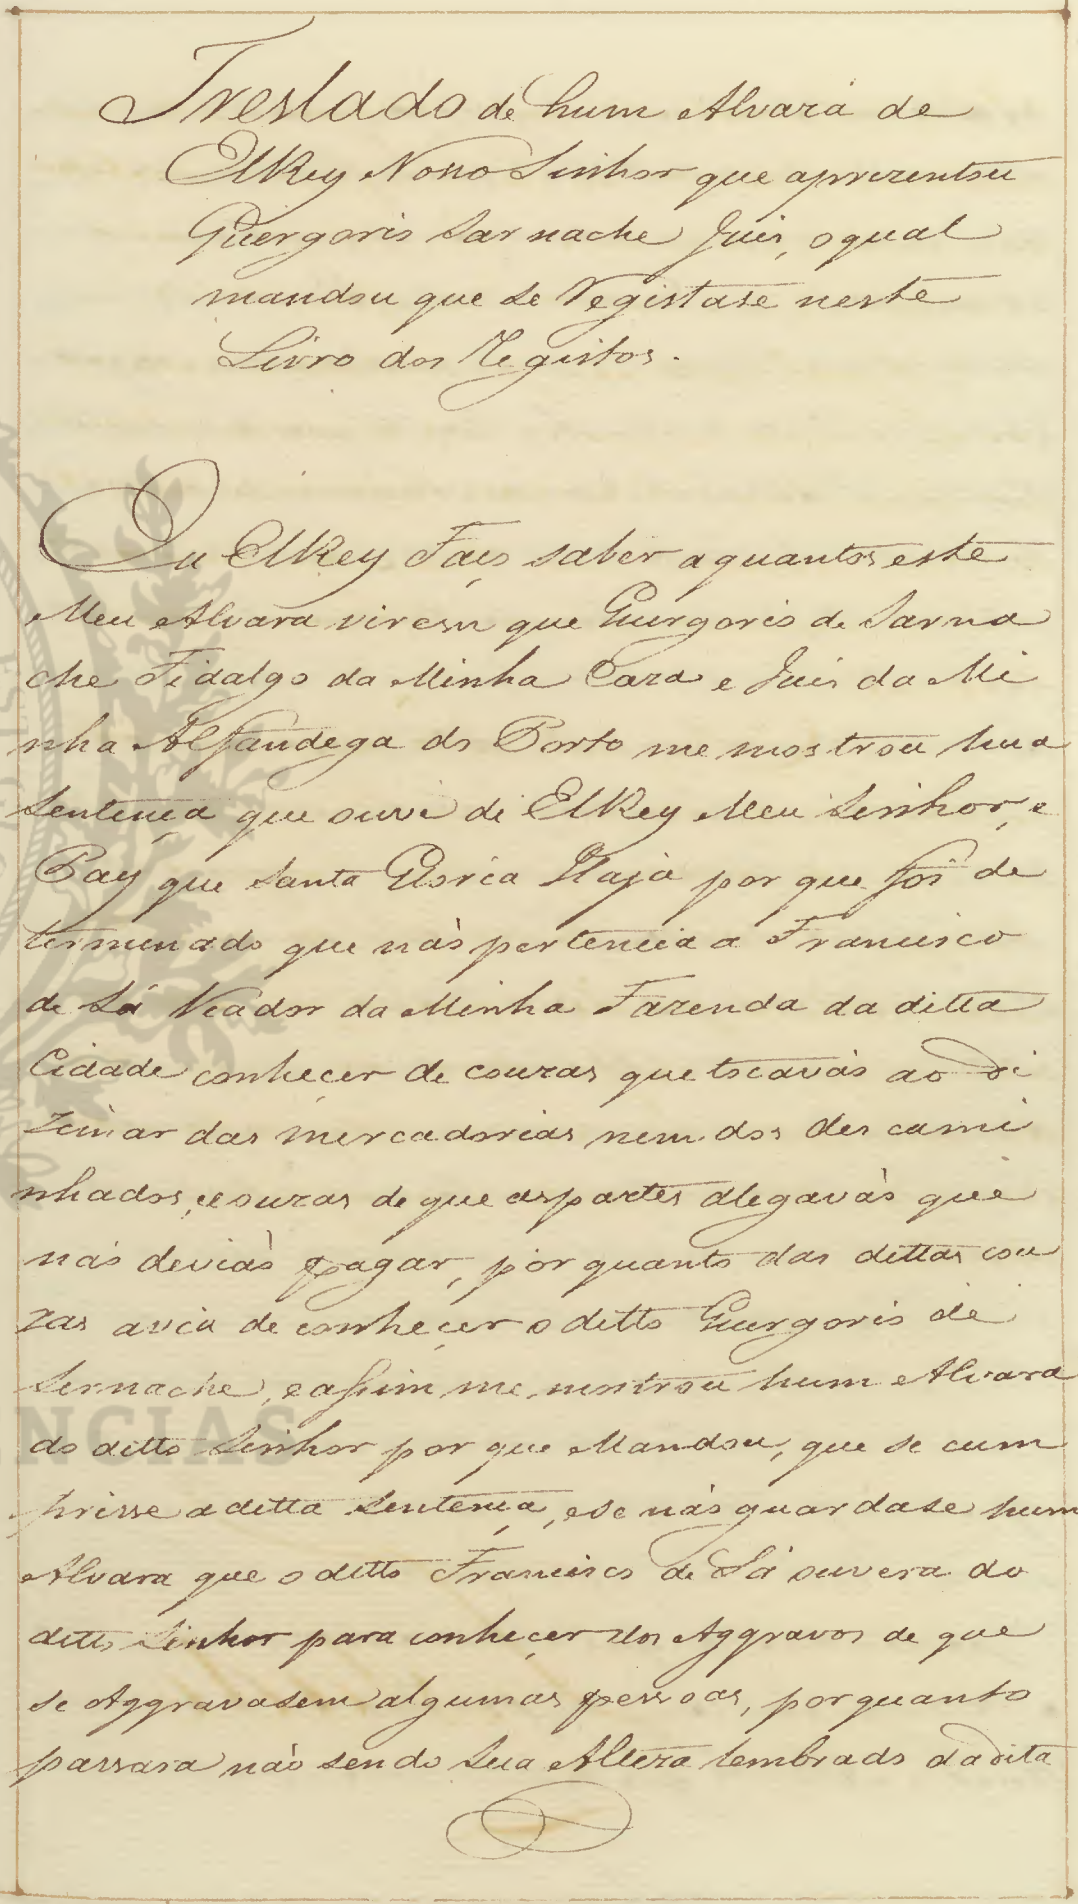 Treslado de hum Alvará de
ElRey Nosso Senhor que aprezentou
Guergoris Sarnache Juis, o qual
mandou que se Registase neste
Livro dos Registos.
Eu ElRey Faço saber a quantos este
Meu Alvara virem que Guergoris de Sarna
che Fidalgo da Minha Caza e Juis da Mi
nha Alfandega do Porto me mostrou hua
Sentença que ouve de ElRey Meu Senhor, e
Pay que Santa Gloria Haja por que foi de
terminado que nào pertencia a Francisco
de Sá Veador da Minha Fazenda da ditta
Cidade conhecer de couzas que tocavào ao di
zimar das mercadorias nem dos descami
nhados, e couzas de que as partes alegavào que
nào deviào pagar, por quanto das dittas cou
zas avia de conhecer o ditto Guergoris de
Sernache, e assim me mostrou hum Alvara
do ditto Senhor por que Mandou, que se cum
prisse a ditta Sentença, e se nào guardase hum
Alvara que o ditto Francisco de Sá ouvera do
ditto Senhor para conhecer dos Aggravos de que
se Aggravasem algumas pessoas, por quanto
passara nào sendo Sua Alteza lembrado da dita